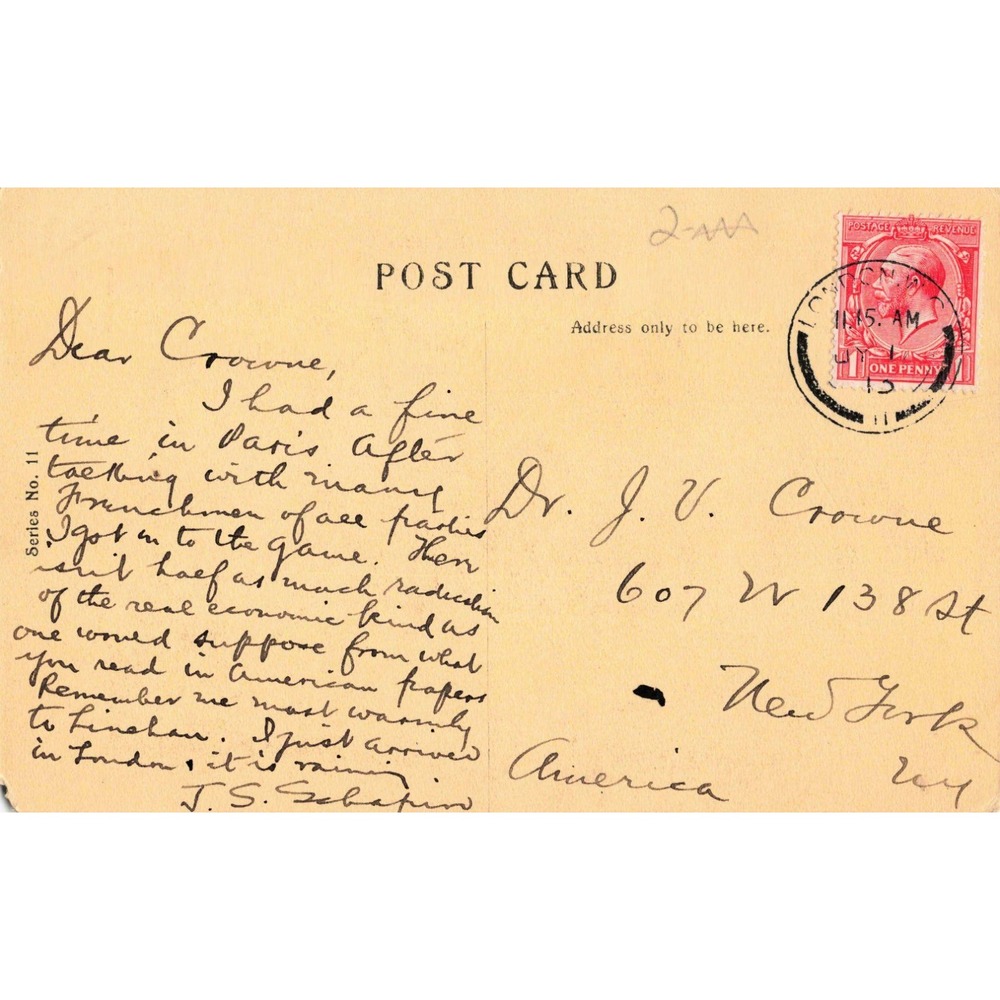 POST CARD
Address only to be here.
Series No. 11
Dear Crowne,
I had a fine
time in Paris After
talking with many
Frenchmen of all parties
I got on to the game. There
isn't half as much radicalism
of the real economic kind as
one would suppose from what
you read in American papers
Remember me most warmly
to Linehan. I just arrived
in London, it is raining
J. S. Schapiro
Dr. J. V. Crowne
607 W 138 St
New York
America NY
POSTAGE REVENUE
1 ONE PENNY 1
LONDON. W.C.
11.45. AM
JY 1
13
11